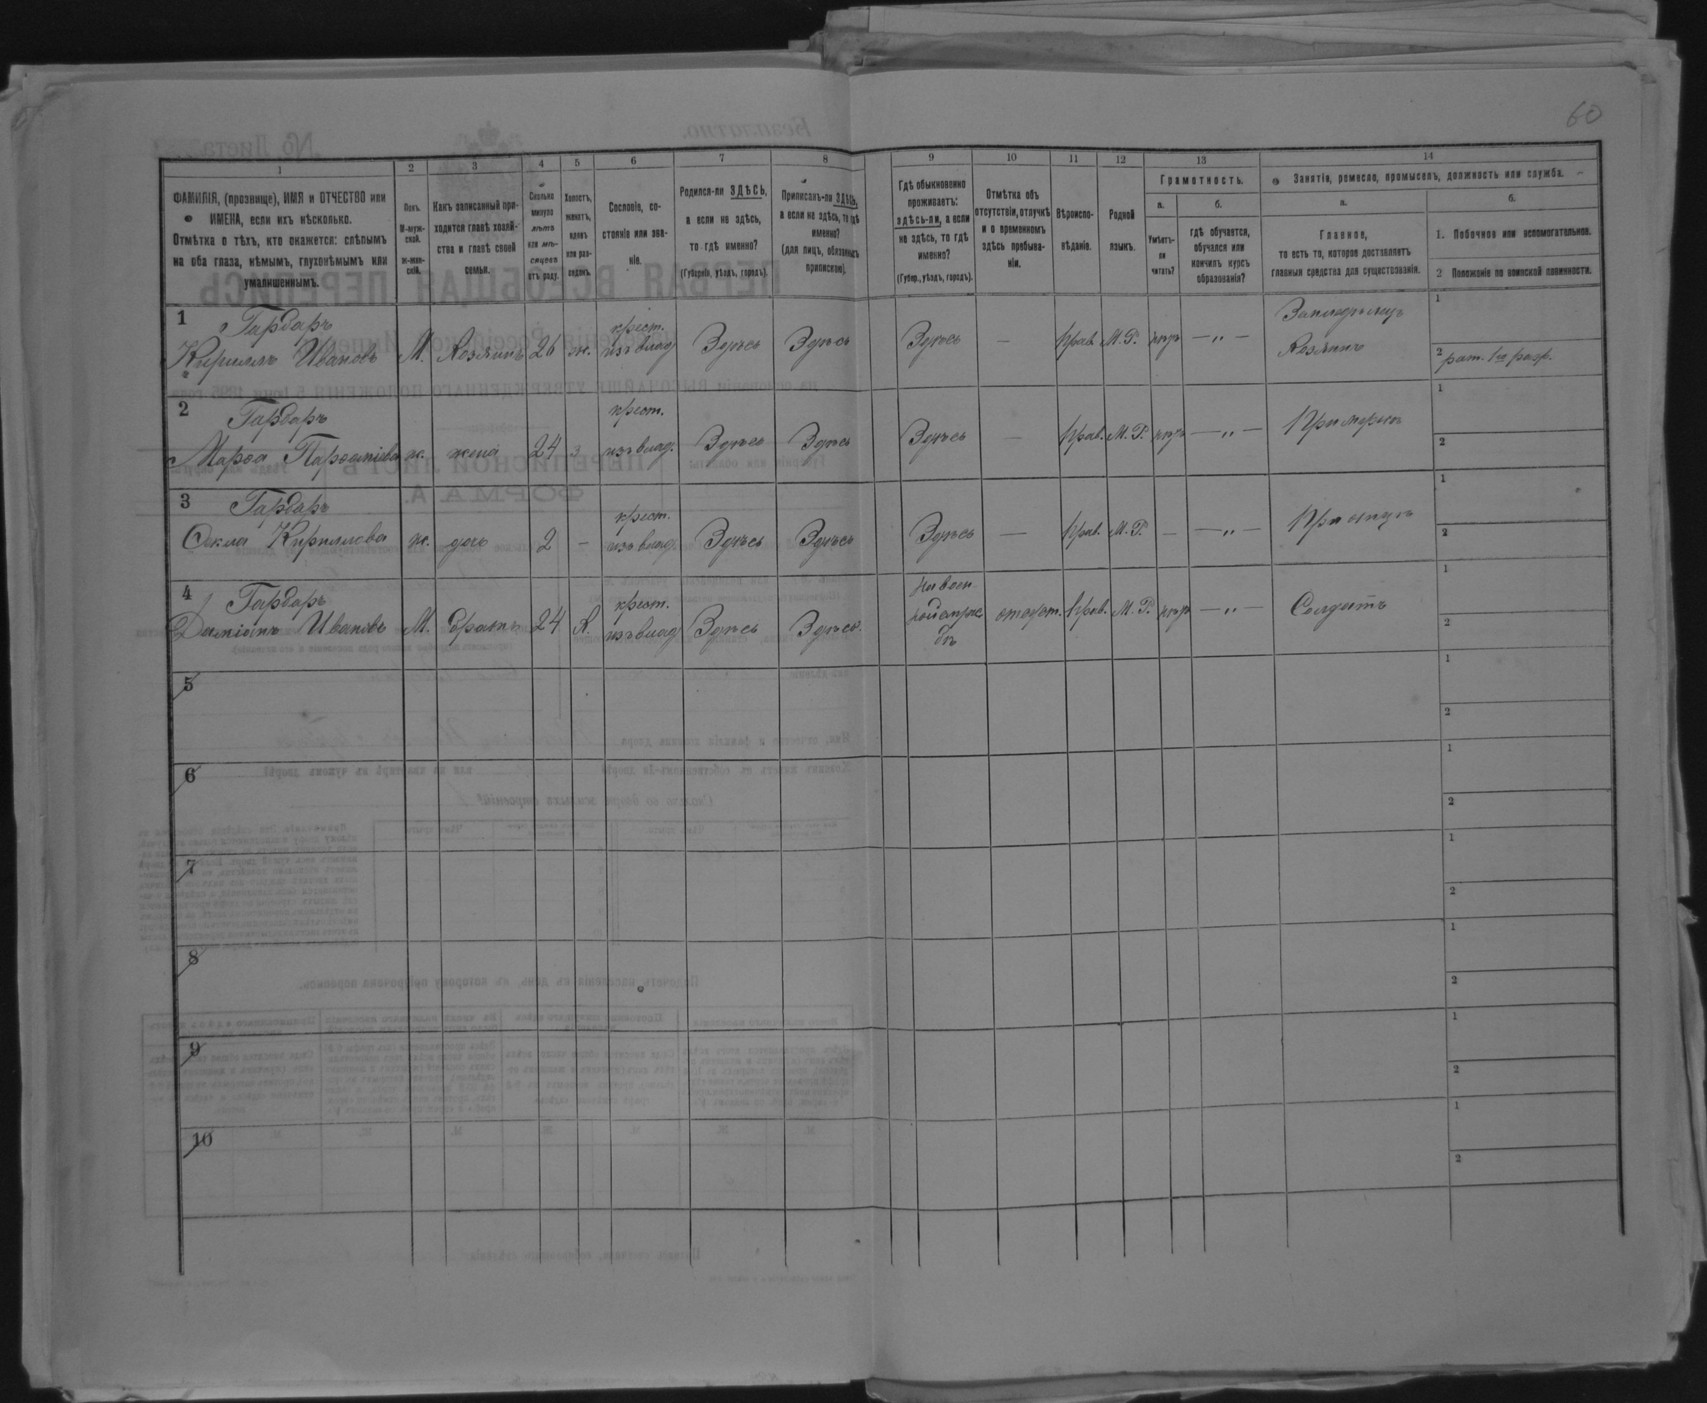 60
1
2
3
4
5
6
7
8
9
10
11
12
13
14
ФАМИЛІЯ, (прозвище), ИМЯ и ОТЧЕСТВО или
ИМЕНА, если ихъ нѣсколько.
Отмѣтка о тѣхъ, кто окажется: слѣпымъ
на оба глаза, нѣмымъ, глухонѣмымъ или
умалишеннымъ.
Полъ.
М-муж-
ской.
Ж-жен-
скій.
Какъ записанный при-
ходится главѣ хозяй-
ства и главѣ своей
семьи.
Сколько
минуло
лѣтъ
или мѣ-
сяцевъ
отъ роду.
Холостъ,
женатъ,
вдовъ
или раз-
веденъ.
Сословіе, со-
стояніе или зва-
ніе.
Родился-ли ЗДѢСЬ,
а если не здѣсь,
то гдѣ именно?
(Губернія, уѣздъ, городъ).
Приписанъ-ли ЗДѢСЬ,
а если не здѣсь, то гдѣ
именно?
(для лицъ, обязанныхъ
припискою).
Гдѣ обыкновенно
проживаетъ:
здѣсь-ли, а если
не здѣсь, то гдѣ
именно?
(Губер., уѣздъ, городъ).
Отмѣтка объ
отсутствіи, отлучкѣ
и о временномъ
здѣсь пребыва-
ніи.
Вѣроиспо-
вѣданіе.
Родной
языкъ.
Грамотность.
а.
б.
Умѣетъ-
ли
читать?
гдѣ обучается,
обучался или
кончилъ курсъ
образованія?
Занятія, ремесло, промыселъ, должность или служба.
а.
б.
Главное,
то есть то, которое доставляетъ
главныя средства для существованія.
1. Побочное или вспомогательное.
2 Положеніе по воинской повинности.
1
Гардаръ
Кириллъ Ивановъ
М.
Хозяинъ
26
ж.
крест.
изъ влад
Здѣсь
Здѣсь
Здѣсь
—
Прав
М. Р.
нѣтъ
— „ —
Земледѣлецъ
Хозяинъ
1
2 рат. 1го разр.
2
Гардаръ
ж.
жена
24
з
крест.
изъ влад.
Здѣсь
Здѣсь
Здѣсь
—
Прав.
М. Р.
нѣтъ
— „ —
При мужѣ
1
2
3
Гардаръ
Ѳекла Кириллова
ж.
дочь
2
—
крест.
изъ влад.
Здѣсь
Здѣсь
Здѣсь
—
Прав.
М. Р.
—
— „ —
При отцѣ
1
2
4
Гардаръ
Даміанъ Ивановъ
М.
братъ
24
Х.
крест.
изъ влад
Здѣсь
Здѣсь.
На воен
ной служ
бѣ
отсут.
Прав.
М. Р.
нѣтъ
— „ —
Солдатъ
1
2
5
1
2
6
1
2
7
1
2
8
1
2
9
1
2
10
1
2